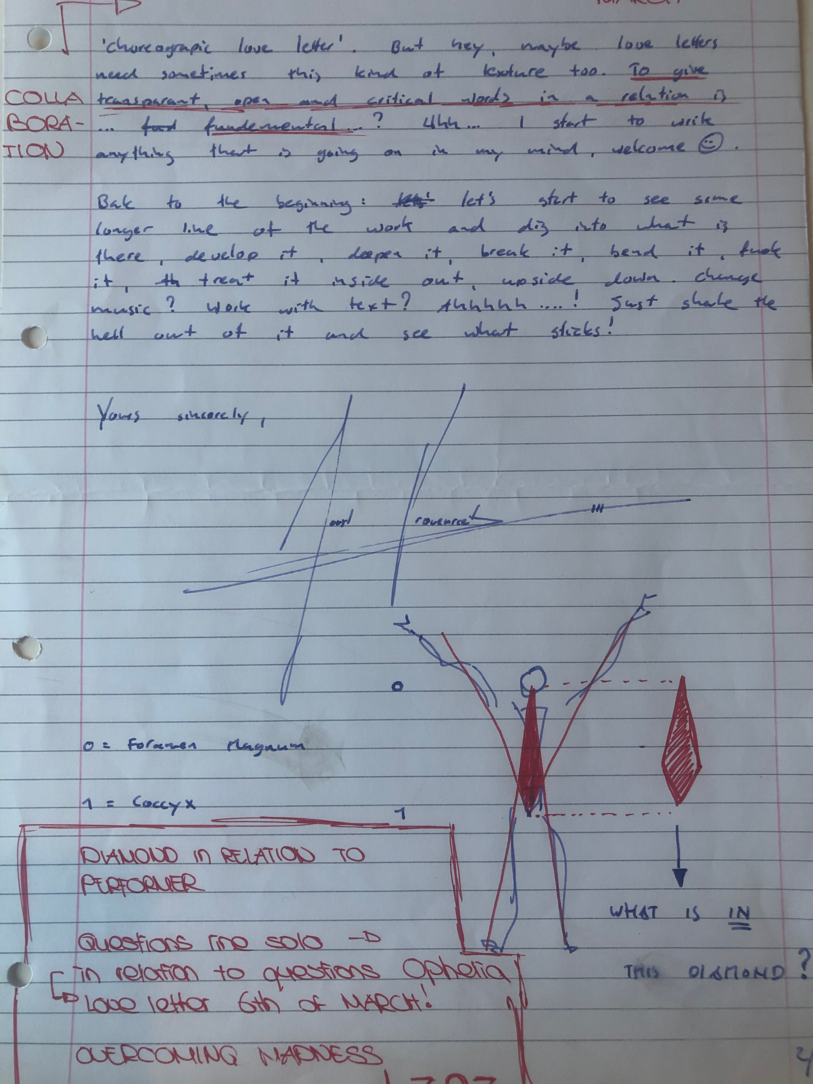 MARCH
'choreograpic love letter'. But hey, maybe love letters
need sometimes this kind of texture too. To give
transparant, open and critical words in a relation is
... fundemental...? Uhh... I start to write
anything that is going on in my mind, welcome ☺.
COLLA
BORA-
TION
Bak to the beginning: let's start to see some
longer line of the work and dig into what is
there, develop it, deepen it, break it, bend it, fuck
it, treat it inside out, upside down. change
music? Work with text? Ahhhhh....! Just shake the
hell out of it and see what sticks!
Yours sincerely,
0
0 = Foramen Magnum
1 = Coccyx
1
DIAMOND IN RELATION TO
PERFORMER
Questions solo →
in relation to questions Ophelia
Love letter 6th of MARCH!
OVERCOMING MADNESS
WHAT IS IN
THIS DIAMOND?